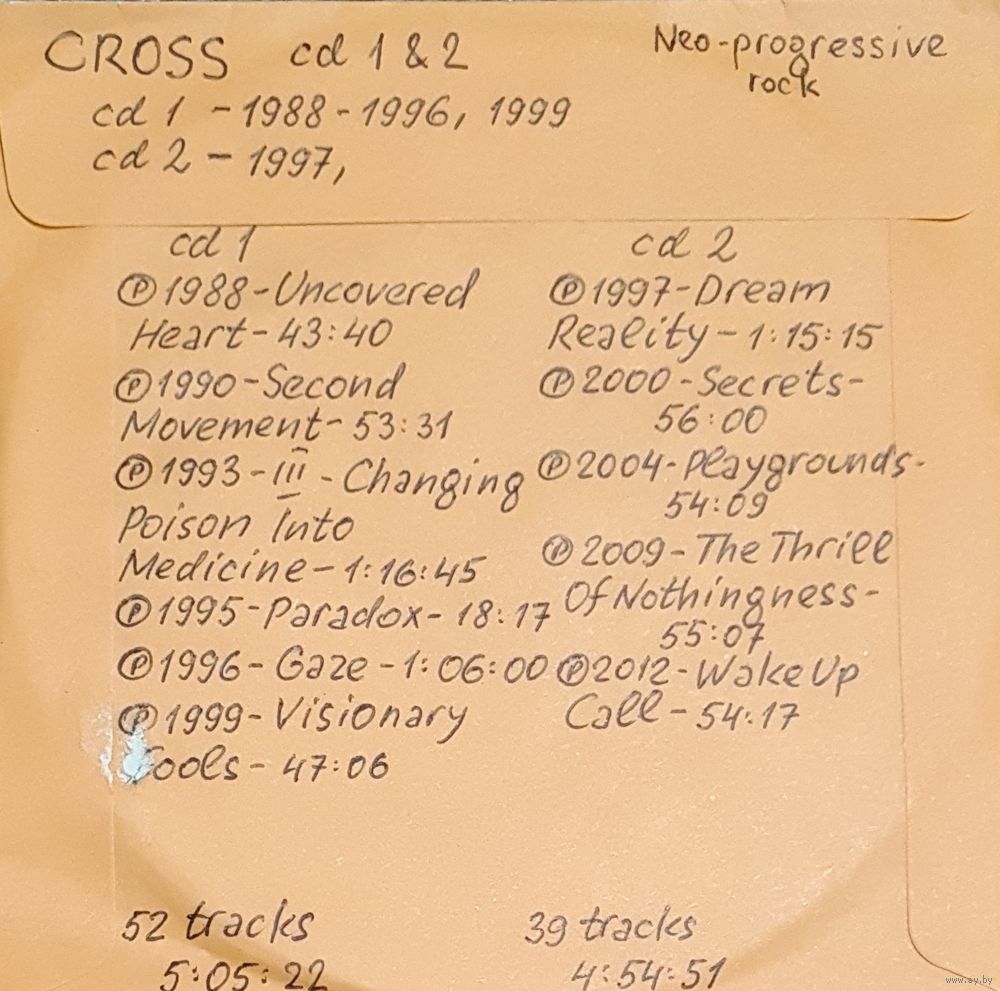 CROSS cd 1 & 2
Neo-progressive
rock
cd 1 - 1988 - 1996, 1999
cd 2 - 1997,
cd 1
Ⓟ1988-Uncovered
Heart- 43:40
Ⓟ1990-Second
Movement- 53:31
Ⓟ1993-III-Changing
Poison Into
Medicine-1:16:45
Ⓟ1995-Paradox-18:17
Ⓟ1996-Gaze-1:06:00
Ⓟ1999-Visionary
Fools- 47:06
52 tracks
5:05:22
cd 2
Ⓟ1997-Dream
Reality-1:15:15
Ⓟ2000-Secrets-
56:00
Ⓟ2004-Playgrounds-
54:09
Ⓟ2009-The Thrill
Of Nothingness-
55:07
Ⓟ2012-Wake Up
Call-54:17
39 tracks
4:54:51
www.ay.by